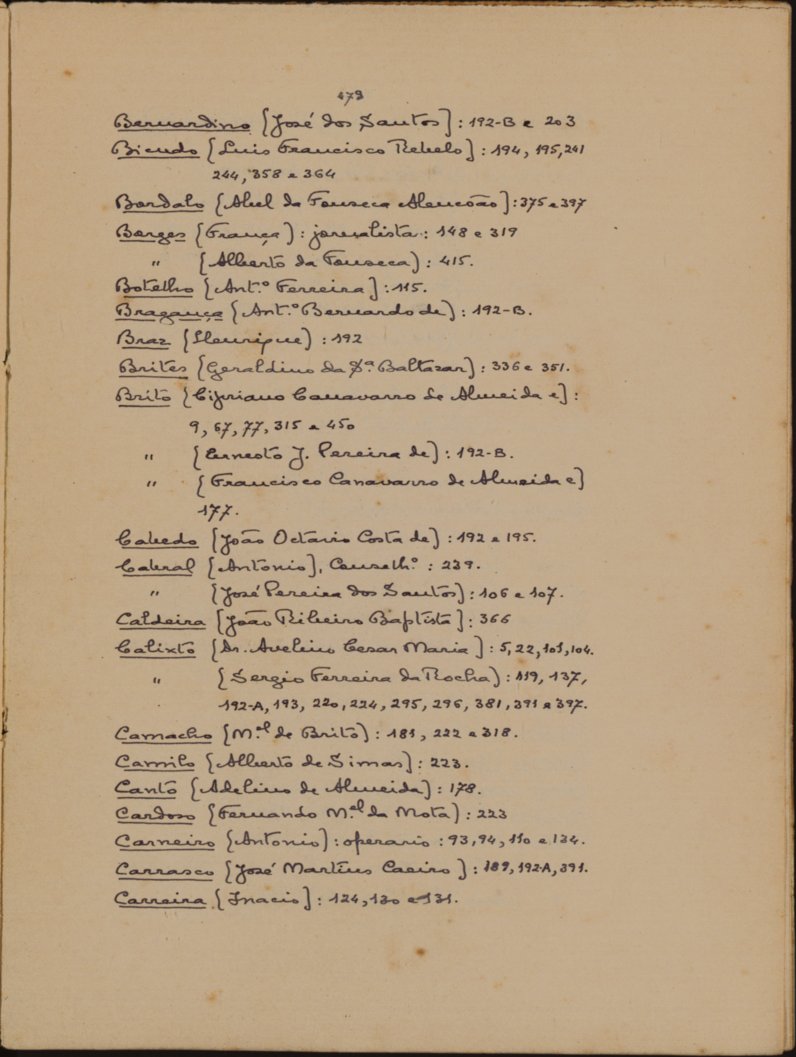 479
Bernardino [José dos Santos]: 192-B e 203
Bicudo [Luis Francisco Rebelo]: 194, 195, 241
244, 358 e 364
Bordalo [Abel da Fonseca Alencoão]: 375 e 397
Borges [França]: jornalista: 148 e 319
" [Alberto da Fonseca]: 415.
Botelho [Ant.º Ferreira]: 115.
Bragança [Ant.º Bernardo de]: 192-B.
Braz [Henrique]: 192
Brites [Geraldino da Sª. Baltazar]: 336 e 351.
Brito [Cipriano Canavarro de Almeida e]:
9, 67, 77, 315 e 450
" [Ernesto J. Pereira de]: 192-B.
" [Francisco Canavarro de Almeida e]
177.
Cabedo [João Octavio Costa de]: 192 e 195.
Cabral [Antonio], Conselh.º: 239.
" [José Pereira dos Santos]: 106 e 107.
Caldeira [João Ribeiro Baptista]: 366
Calixto [Dr. Avelino Cesar Maria]: 5, 22, 101, 104.
" [Sergio Ferreira da Rocha]: 119, 137,
192-A, 193, 220, 224, 295, 296, 381, 391 e 397.
Camacho [M.el de Brito]: 181, 222 e 318.
Camilo [Alberto de Simas]: 223.
Canto [Adelino de Almeida]: 178.
Cardoso [Fernando M.el da Mota]: 223
Carneiro [Antonio]: operario: 93, 94, 110 e 134.
Carrasco [José Martins Caeiro]: 189, 192-A, 391.
Carreira [Inacio]: 124, 130 e 131.